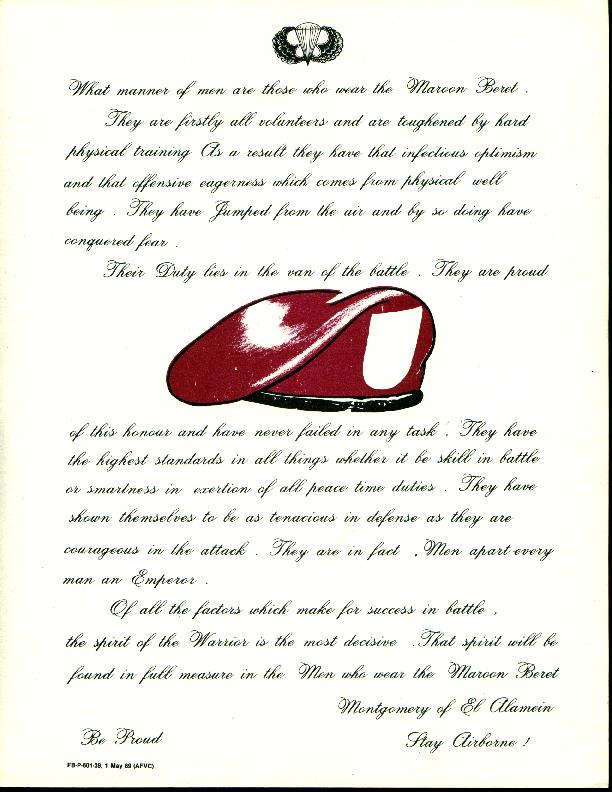 What manner of men are those who wear the Maroon Beret .
They are firstly all volunteers and are toughened by hard
physical training As a result they have that infectious optimism
and that offensive eagerness which comes from physical well
being . They have Jumped from the air and by so doing have
conquered fear .
Their Duty lies in the van of the battle . They are proud
of this honour and have never failed in any task . They have
the highest standards in all things whether it be skill in battle
or smartness in exertion of all peace time duties . They have
shown themselves to be as tenacious in defense as they are
courageous in the attack . They are in fact , Men apart every
man an Emperor .
Of all the factors which make for success in battle ,
the spirit of the Warrior is the most decisive . That spirit will be
found in full measure in the Men who wear the Maroon Beret
Montgomery of El Alamein
Be Proud
Stay Airborne !
FB-P-601-39, 1 May 89 (AFVC)